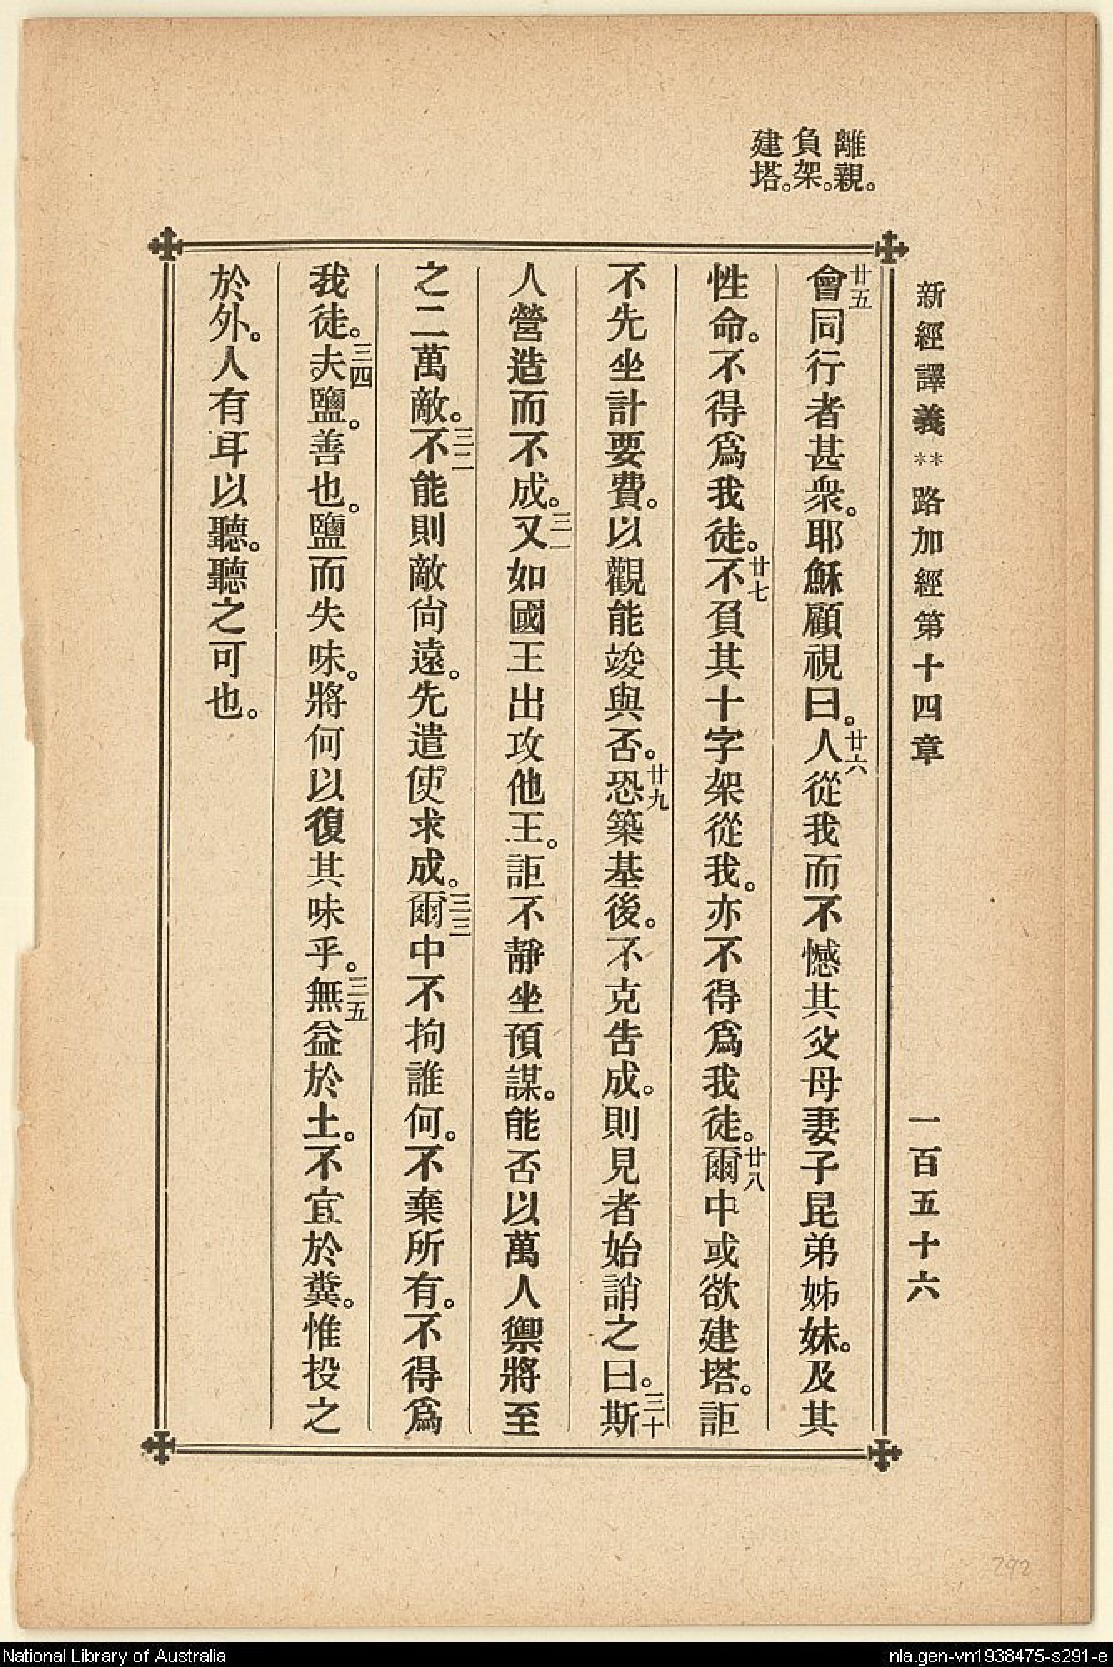 離親。
負架。
建塔。
新經譯義**路加經第十四章 一百五十六
廿五會同行者甚衆。耶穌顧視曰。廿六人從我而不憾其父母妻子昆弟姊妹。及其
性命。不得爲我徒。廿七不負其十字架從我。亦不得爲我徒。廿八爾中或欲建塔。詎
不先坐計要費。以觀能竣與否。廿九恐築基後。不克吿成。則見者始誚之曰。三十斯
人營造而不成。三一又如國王出攻他王。詎不靜坐預謀。能否以萬人禦將至
之二萬敵。三二不能則敵尙遠。先遣使求成。三三爾中不拘誰何。不棄所有。不得爲
我徒。三四夫鹽。善也。鹽而失味。將何以復其味乎。三五無益於土。不宜於糞。惟投之
於外。人有耳以聽。聽之可也。
292
National Library of Australia
nla.gen-vn1938475-s291-e